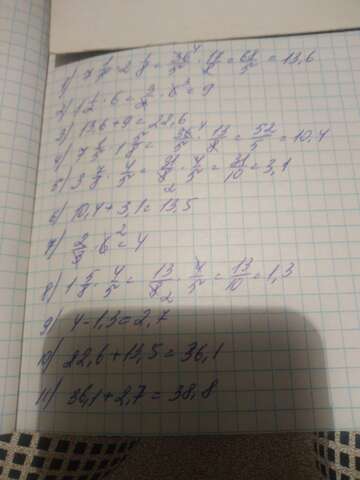 1) 7 1/5 · 2 1/8 = 36/5 · 17/8 = 68/5 = 13,6
2) 1 1/2 · 6 = 3/2 · 6 = 9
3) 13,6 + 9 = 22,6
4) 7 1/5 · 1 5/8 = 36/5 · 13/8 = 52/5 = 10,4
5) 3 7/8 · 4/5 = 31/8 · 4/5 = 31/10 = 3,1
6) 10,4 + 3,1 = 13,5
7) 2/3 · 6 = 4
8) 1 5/8 · 4/5 = 13/8 · 4/5 = 13/10 = 1,3
9) 4 - 1,3 = 2,7
10) 22,6 + 13,5 = 36,1
11) 36,1 + 2,7 = 38,8